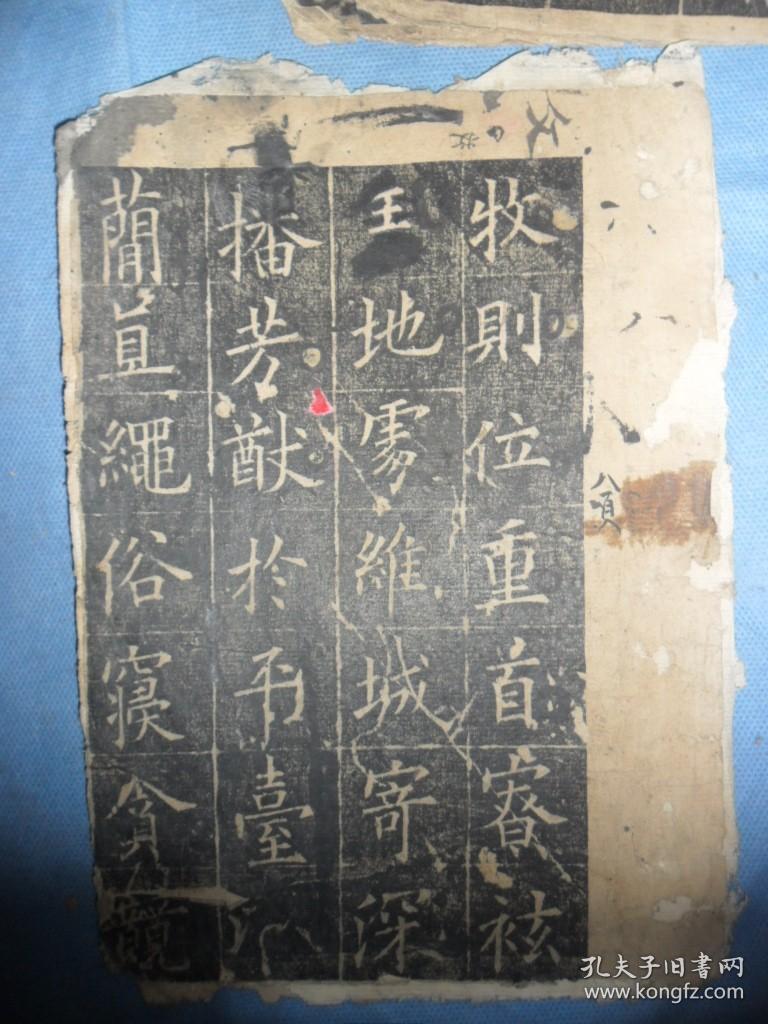 六八
八頁
牧則位重首寮袨
王地處維城寄深
播芳猷於平臺
蕳直繩俗寢貪競
孔夫子旧書网
www.kongfz.com